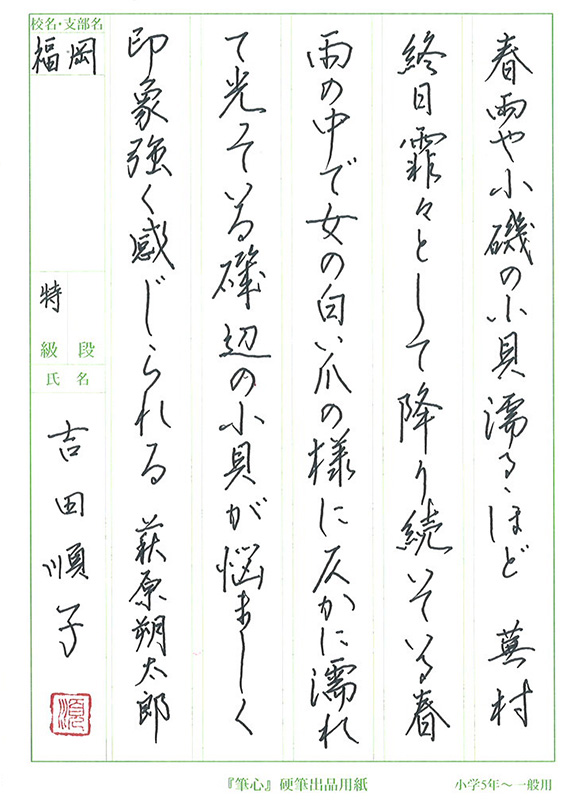 春雨や小磯の小貝濡るゝほど 蕪村
終日霏々として降り続いている春
雨の中で女の白い爪の様に仄かに濡れ
て光っている磯辺の小貝が悩ましく
印象強く感じられる 萩原朔太郎
校名・支部名
福岡
特
級 段
氏名
吉田順子
順
『筆心』硬筆出品用紙
小学5年～一般用